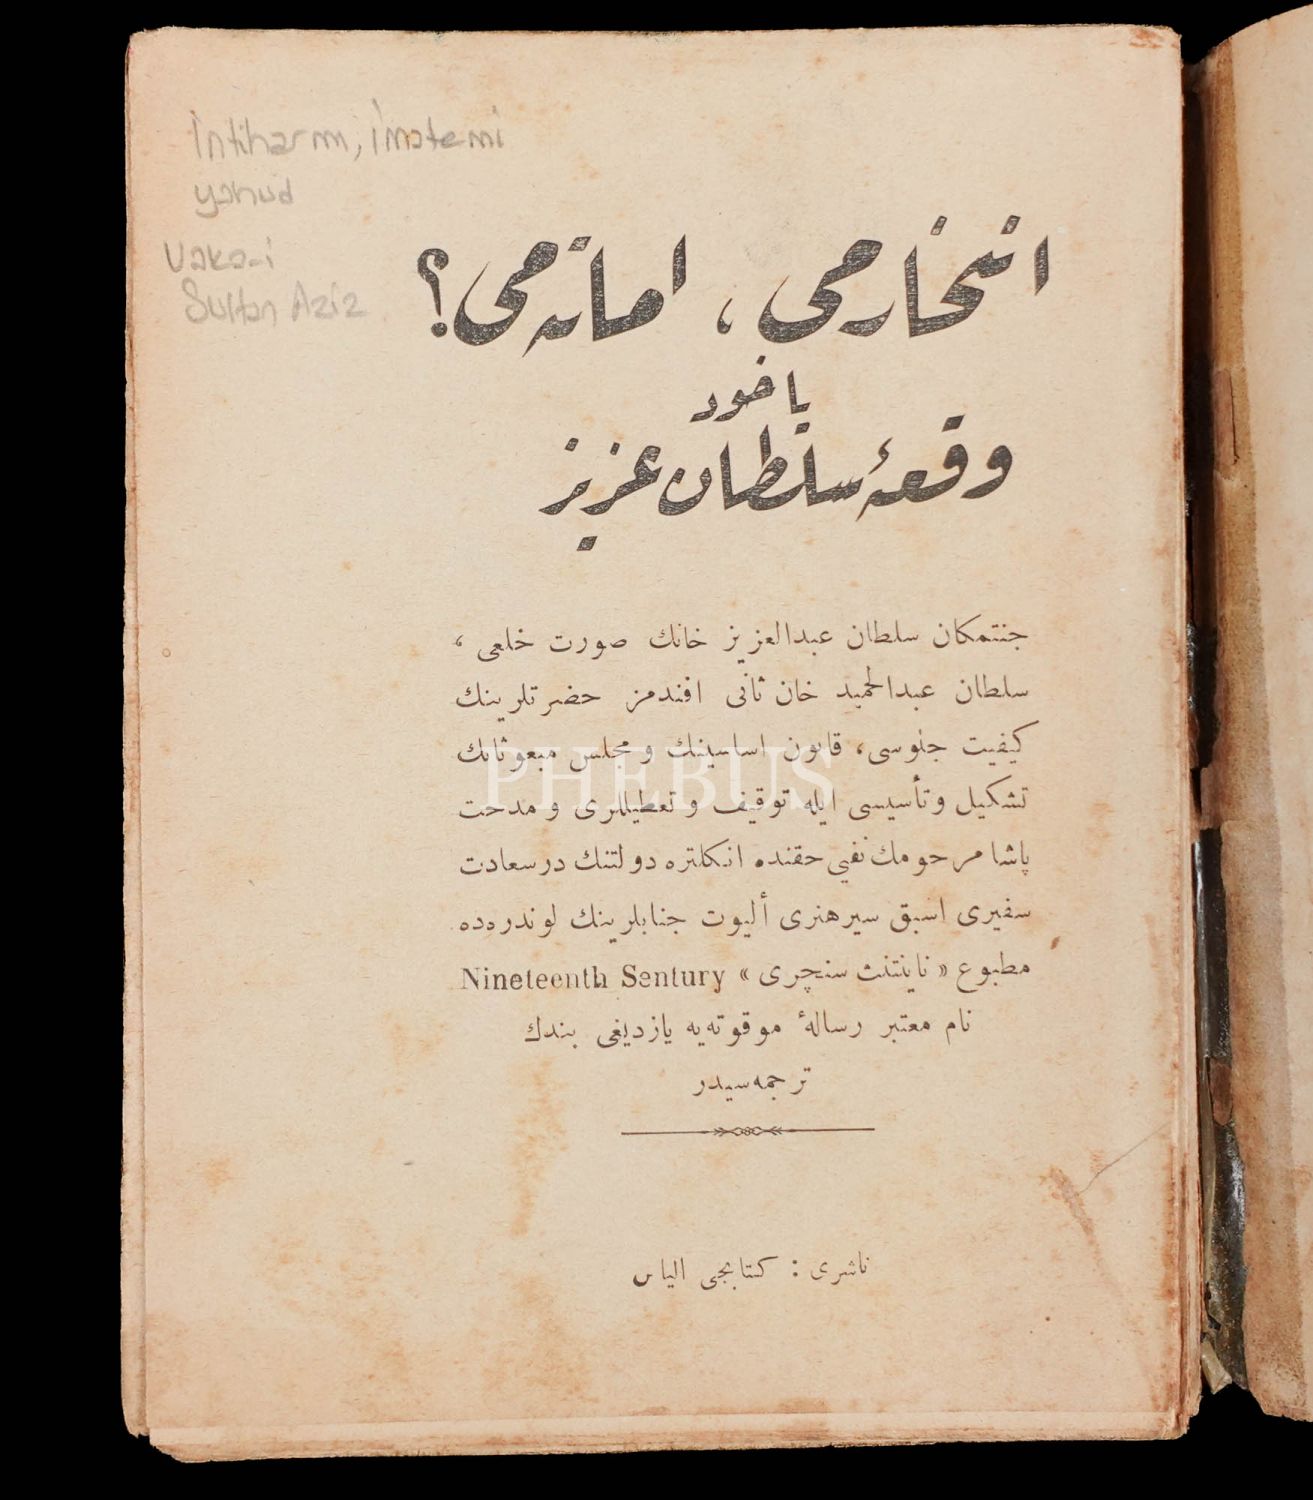 İntiharmı, imatemi
yahud
Vaka-i
Sultan Aziz
انتحارمی، اماتهمی؟
یاخود
وقعهٔ سلطان عزیز
جنتمكان سلطان عبدالعزیز خانك صورت خلعی،
سلطان عبدالحمید خان ثانی افندمز حضرتلرینك
كیفیت جلوسی، قانون اساسینك و مجلس مبعوثانك
تشكیل و تأسیسی ایله توقیف و تعطیللری و مدحت
پاشا مرحومك نفیی حقنده انكلتره دولتنك درسعادت
سفیری اسبق سیر هنری ألیوت جنابلرینك لوندره‌ده
مطبوع «ناینتنث سنچری» Nineteenth Sentury
نام معتبر رسالهٔ موقوته‌یه یازدیغی بندك
ترجمه‌سیدر
ناشری : كتابجی الیاس
PHEBUS